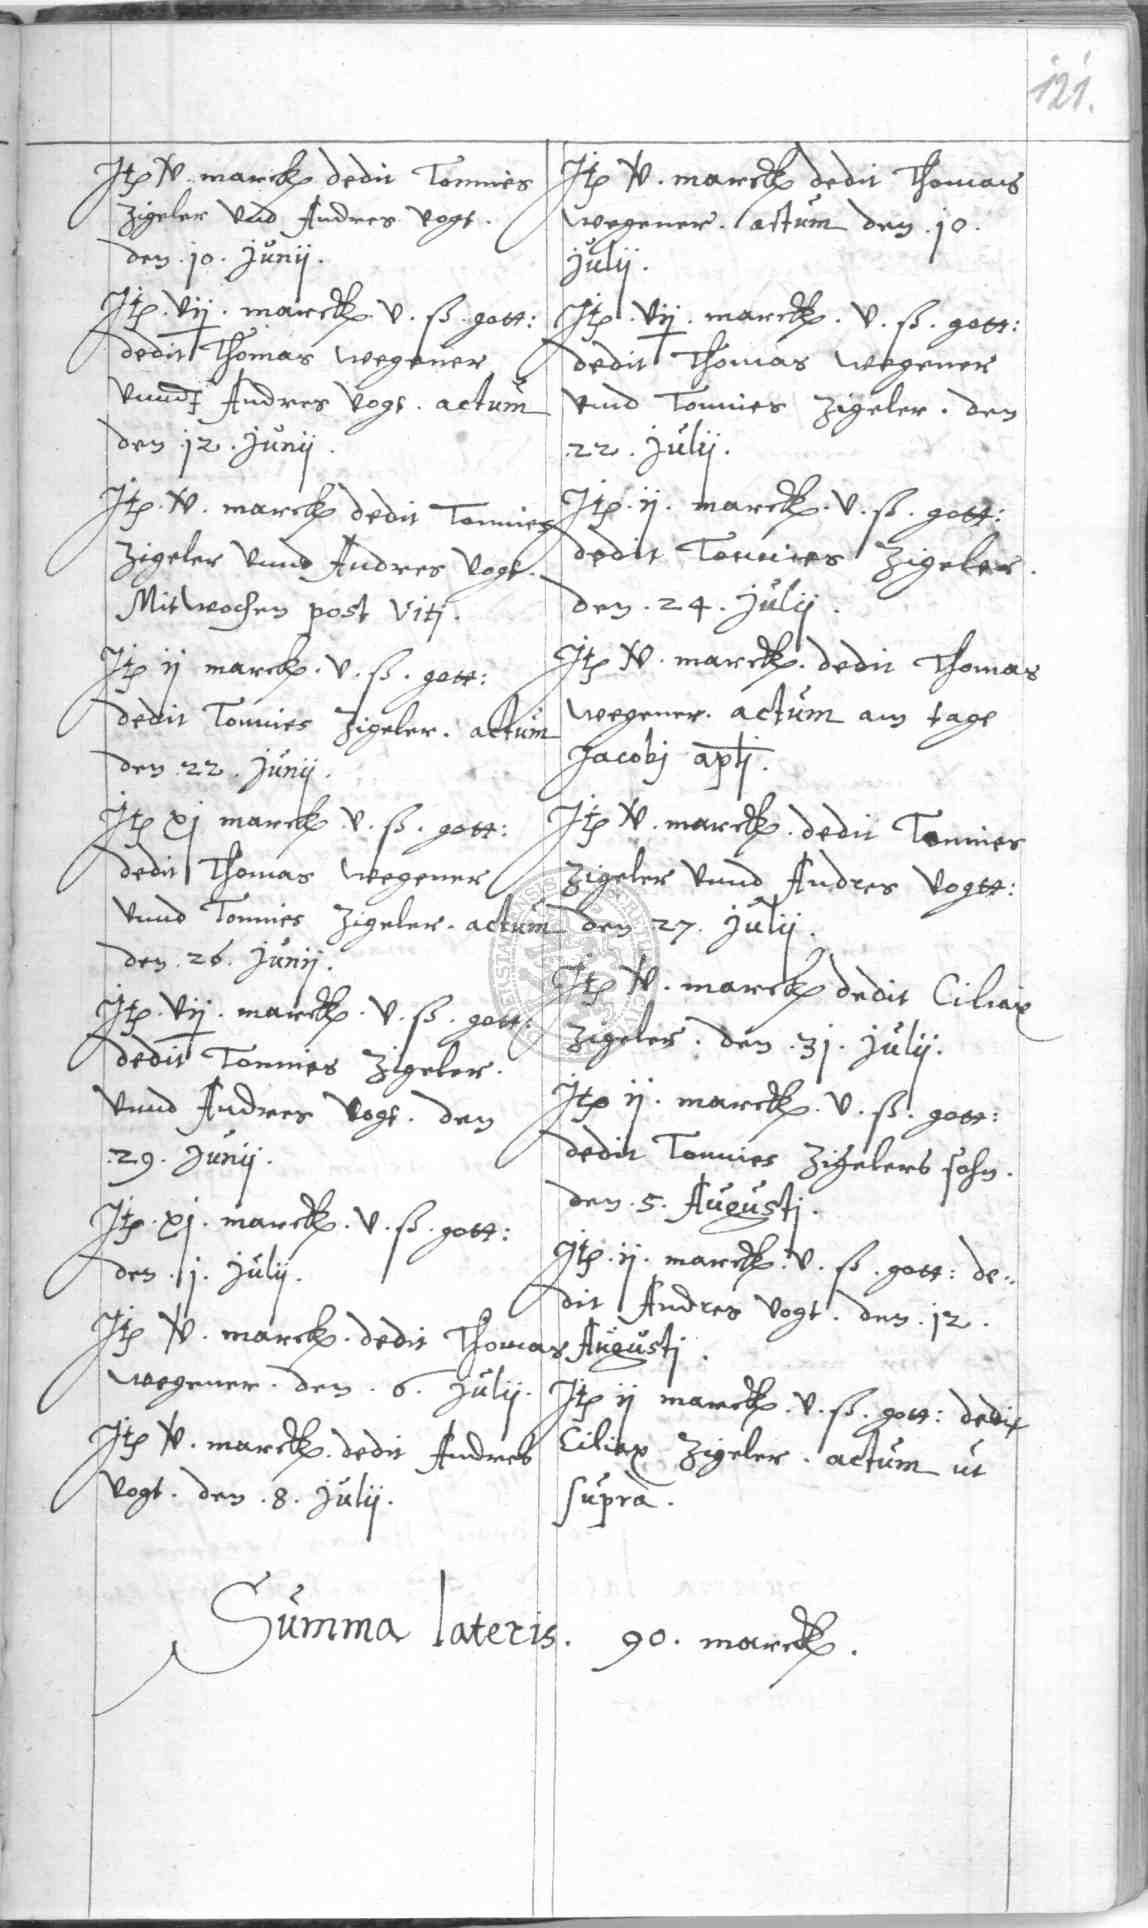 121.
Itp V̶. marck dedit Tonnies
Zigeler vnd Andres Vogt.
den .10. Junij.
Itp. Vij̶. marck. V. ß. gott:
dedit Thomas Wegener
vnnd Andres Vogt. actum
den .12. Junij.
Itp. V̶. marck dedit Tonnies
Zigeler vnnd Andres Vogt.
Mitwochen post Viti.
Itp ij marck. V. ß. gott:
dedit Tonnies Zigeler. actum
den .22. Junij.
Itp xj marck. V. ß. gott:
dedit Thomas Wegener
vnnd Tonnies Zigeler. actum
den .26. Junij.
Itp. Vij̶. marck. V. ß. gott:
dedit Tonnies Zigeler.
vnnd Andres Vogt. den
.29. Junij.
Itp. xj. marck. V. ß. gott:
den .j. Julij.
Itp V̶. marck. dedit Thomas
Wegener. den .6. Julij.
Itp V̶. marck. dedit Andres
Vogt. den .8. Julij.
Itp V̶. marck dedit Thomas
Wegener. actum den .10.
Julij.
Itp. Vij̶. marck. V. ß. gott:
dedit Thomas Wegener
vnnd Tonnies Zigeler. den
.22. Julij.
Itp. ij. marck. V. ß. gott:
dedit Tonnies Zigeler.
den .24. Julij.
Itp V̶. marck. dedit Thomas
Wegener. actum am tage
Jacobj aptj.
Itp V̶. marck. dedit Tonnies
Zigeler vnnd Andres Vogtt:
den .27. Julij.
Itp V̶. marck dedit Ciliax
Zigeler. den .31. Julij.
Itp ij. marck. V. ß. gott:
dedit Tonnies Zigelers sohn.
den .5. Augustj.
Itp. ij. marck. V. ß. gott: de-
dit Andres Vogt. den .12.
Augustj.
Itp ij marck. V. ß. gott: dedit
Ciliax Zigeler. actum ut
supra.
Summa lateris. 90. marck.